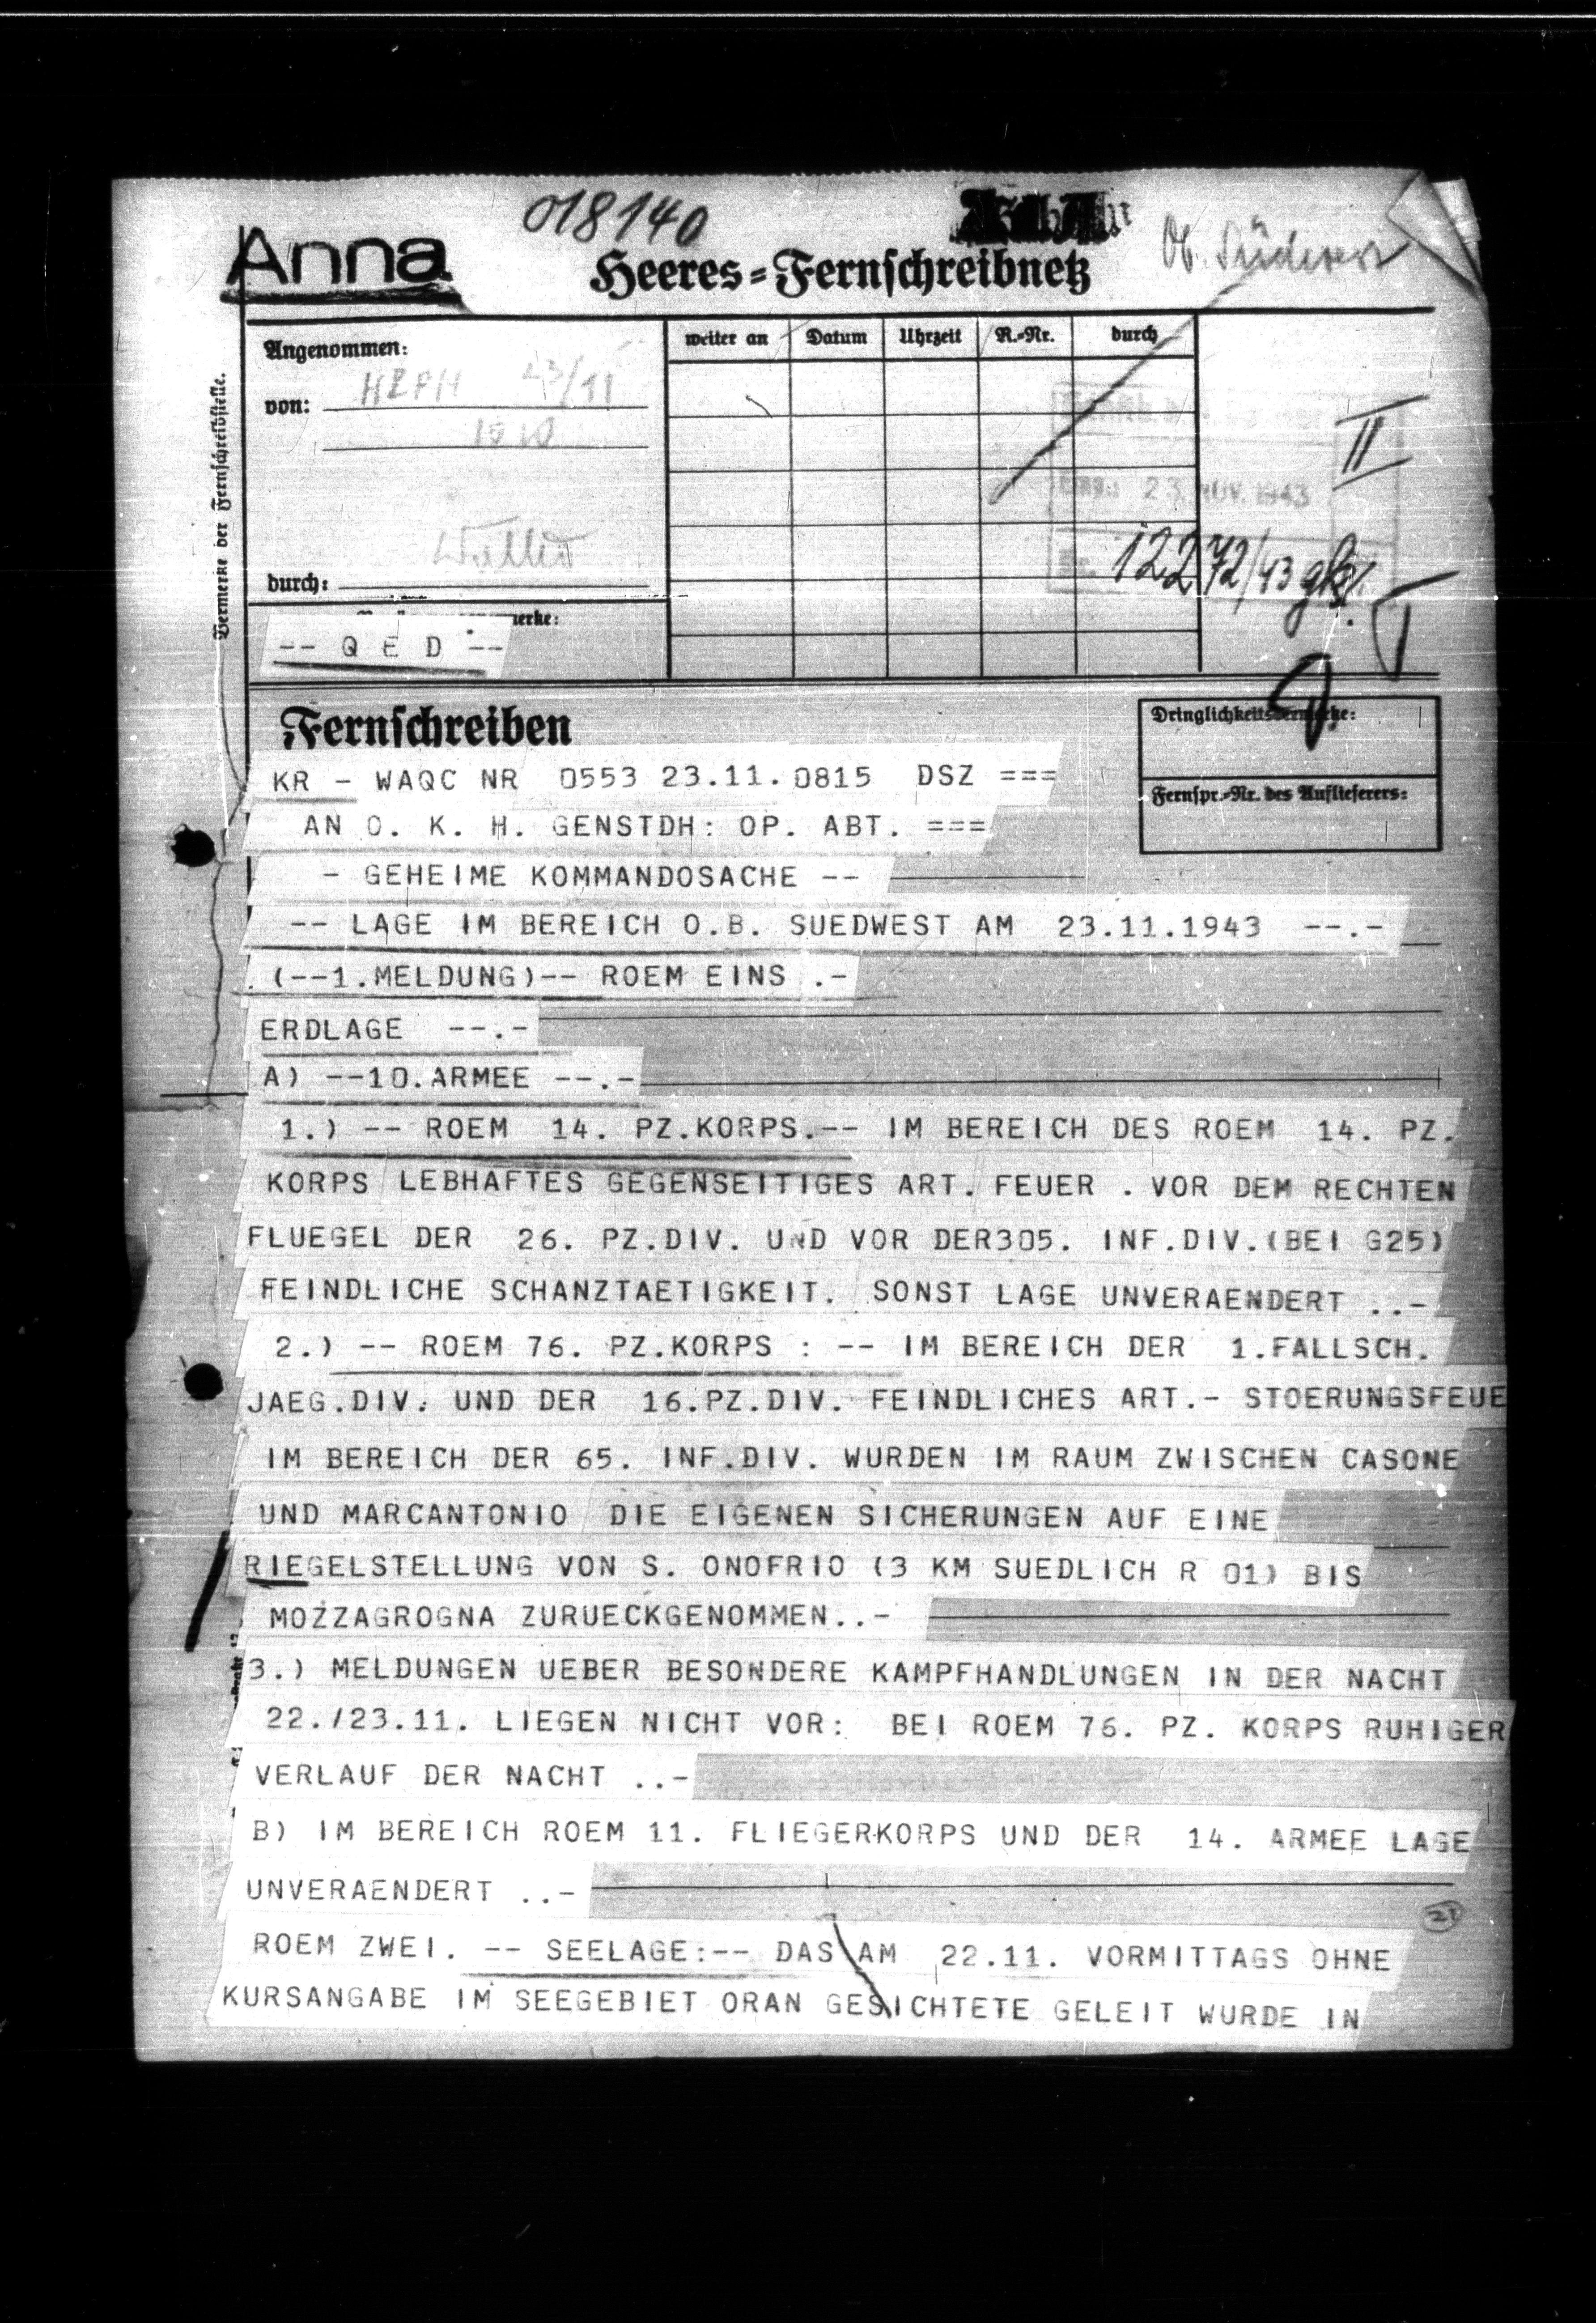 018140
Anna
Ob. Südwest
Heeres-Fernschreibnetz
Vermerke der Fernschreibstelle.
Angenommen:
von:
23/11
durch:
weiter an Datum Uhrzeit R.-Nr. durch
II
Eing.: 23. NOV. 1943
Nr. 12272/43 gK.
-- Q E D --
Fernschreiben
Dringlichkeitsvermerke:
Fernspr.-Nr. des Auflieferers:
KR - WAQC NR 0553 23.11.0815 DSZ ===
AN O. K. H. GENSTDH: OP. ABT. ===
- GEHEIME KOMMANDOSACHE --
-- LAGE IM BEREICH O.B. SUEDWEST AM 23.11.1943 --.-
(--1.MELDUNG)-- ROEM EINS .-
ERDLAGE --.-
A) --10.ARMEE --.-
1.) -- ROEM 14. PZ.KORPS.-- IM BEREICH DES ROEM 14. PZ.
KORPS LEBHAFTES GEGENSEITIGES ART. FEUER . VOR DEM RECHTEN
FLUEGEL DER 26. PZ.DIV. UND VOR DER305. INF.DIV.(BEI G25)
FEINDLICHE SCHANZTAETIGKEIT. SONST LAGE UNVERAENDERT ..-
2.) -- ROEM 76. PZ.KORPS : -- IM BEREICH DER 1.FALLSCH.
JAEG.DIV. UND DER 16.PZ.DIV. FEINDLICHES ART.- STOERUNGSFEUE
IM BEREICH DER 65. INF.DIV. WURDEN IM RAUM ZWISCHEN CASONE
UND MARCANTONIO DIE EIGENEN SICHERUNGEN AUF EINE
RIEGELSTELLUNG VON S. ONOFRIO (3 KM SUEDLICH R 01) BIS
MOZZAGROGNA ZURUECKGENOMMEN..-
3.) MELDUNGEN UEBER BESONDERE KAMPFHANDLUNGEN IN DER NACHT
22./23.11. LIEGEN NICHT VOR: BEI ROEM 76. PZ. KORPS RUHIGER
VERLAUF DER NACHT ..-
B) IM BEREICH ROEM 11. FLIEGERKORPS UND DER 14. ARMEE LAGE
UNVERAENDERT ..-
21
ROEM ZWEI. -- SEELAGE:-- DAS AM 22.11. VORMITTAGS OHNE
KURSANGABE IM SEEGEBIET ORAN GESICHTETE GELEIT WURDE IN